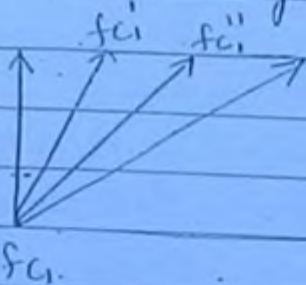 fc₁' fc₁''
fc₁.